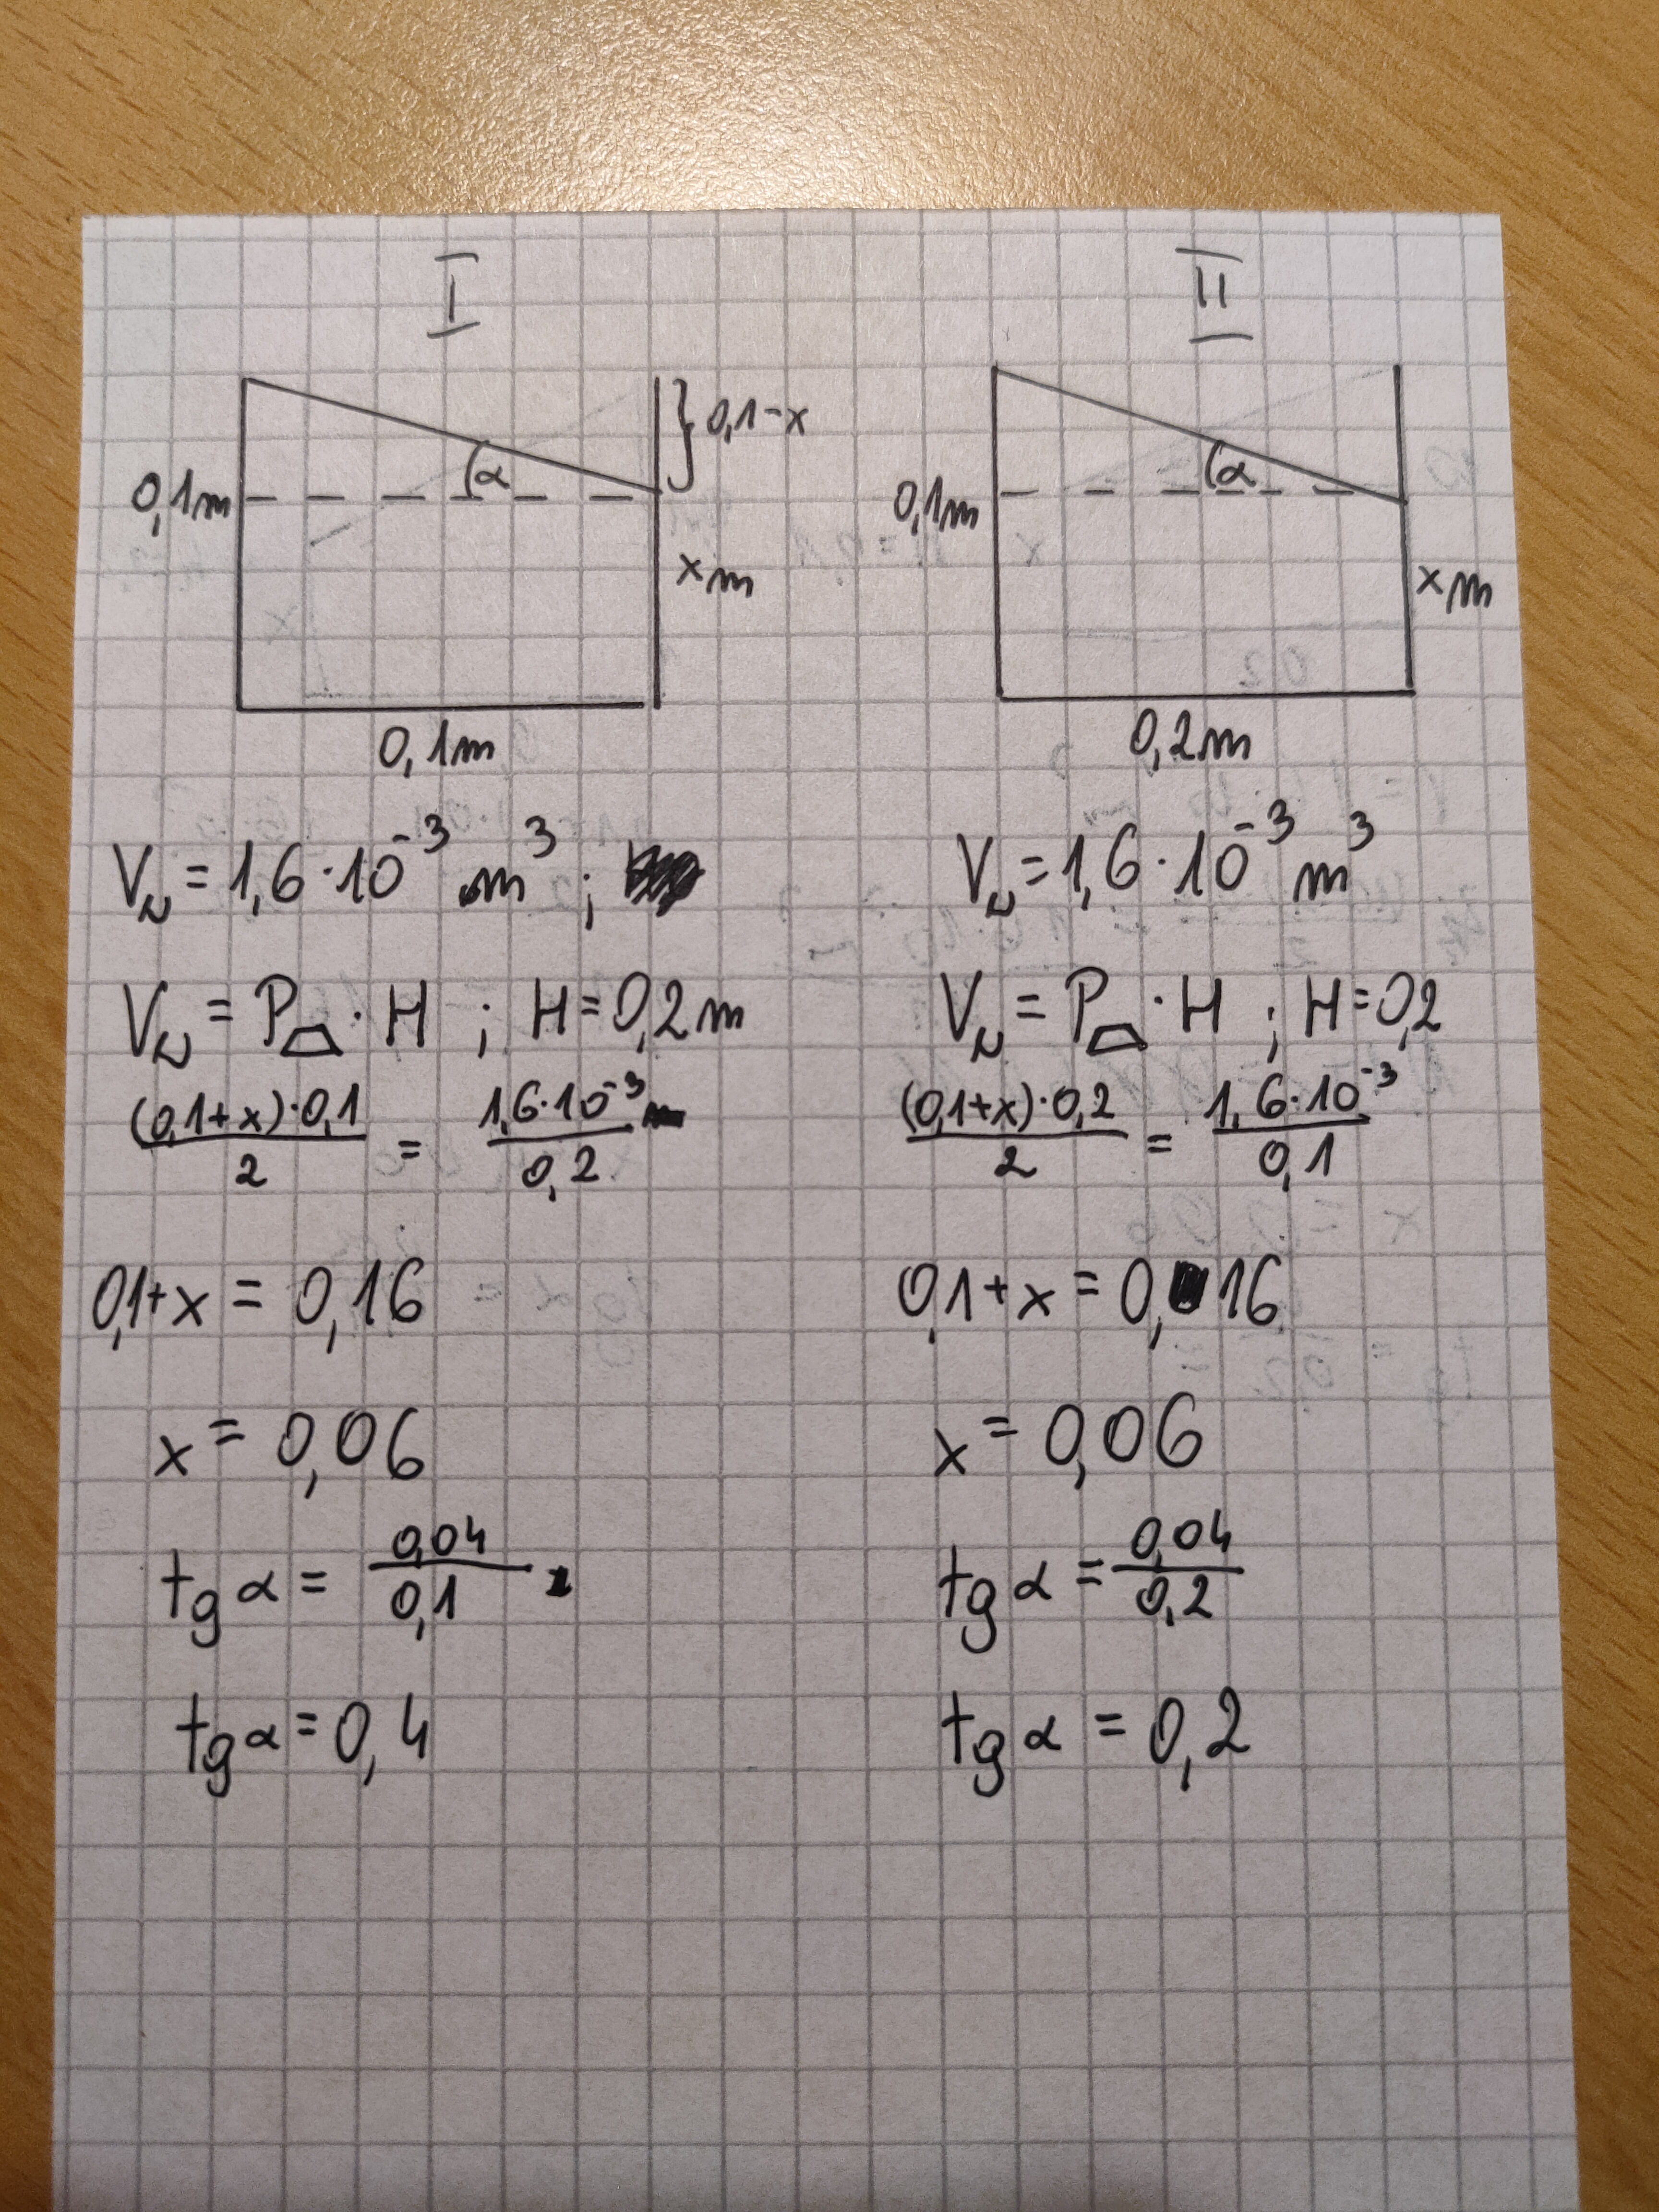 I
0,1-x
α
0,1m
xm
0,1m
V = 1,6·10⁻³ m³ ;
V = P⏢ · H ; H=0,2m
(0,1+x)·0,1/2 = 1,6·10⁻³/0,2
0,1+x = 0,16
x = 0,06
tg α = 0,04/0,1
tg α = 0,4
II
α
0,1m
xm
0,2m
V = 1,6·10⁻³ m³
V = P⏢ · H ; H=0,2
(0,1+x)·0,2/2 = 1,6·10⁻³/0,1
0,1+x = 0,16
x = 0,06
tg α = 0,04/0,2
tg α = 0,2